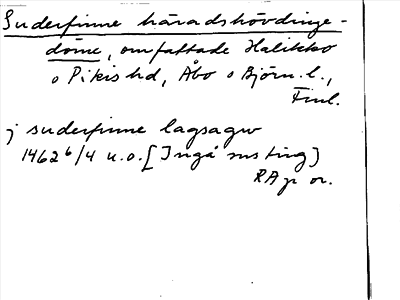 Suderfinne häradshövdinge-
döme, omfattade Halikko
o Pikis hd, Åbo o Björn. l.,
Finl.
j suderfinne lagsagw
1462 6/4 u.o. [Ingå sns ting]
RA p or.